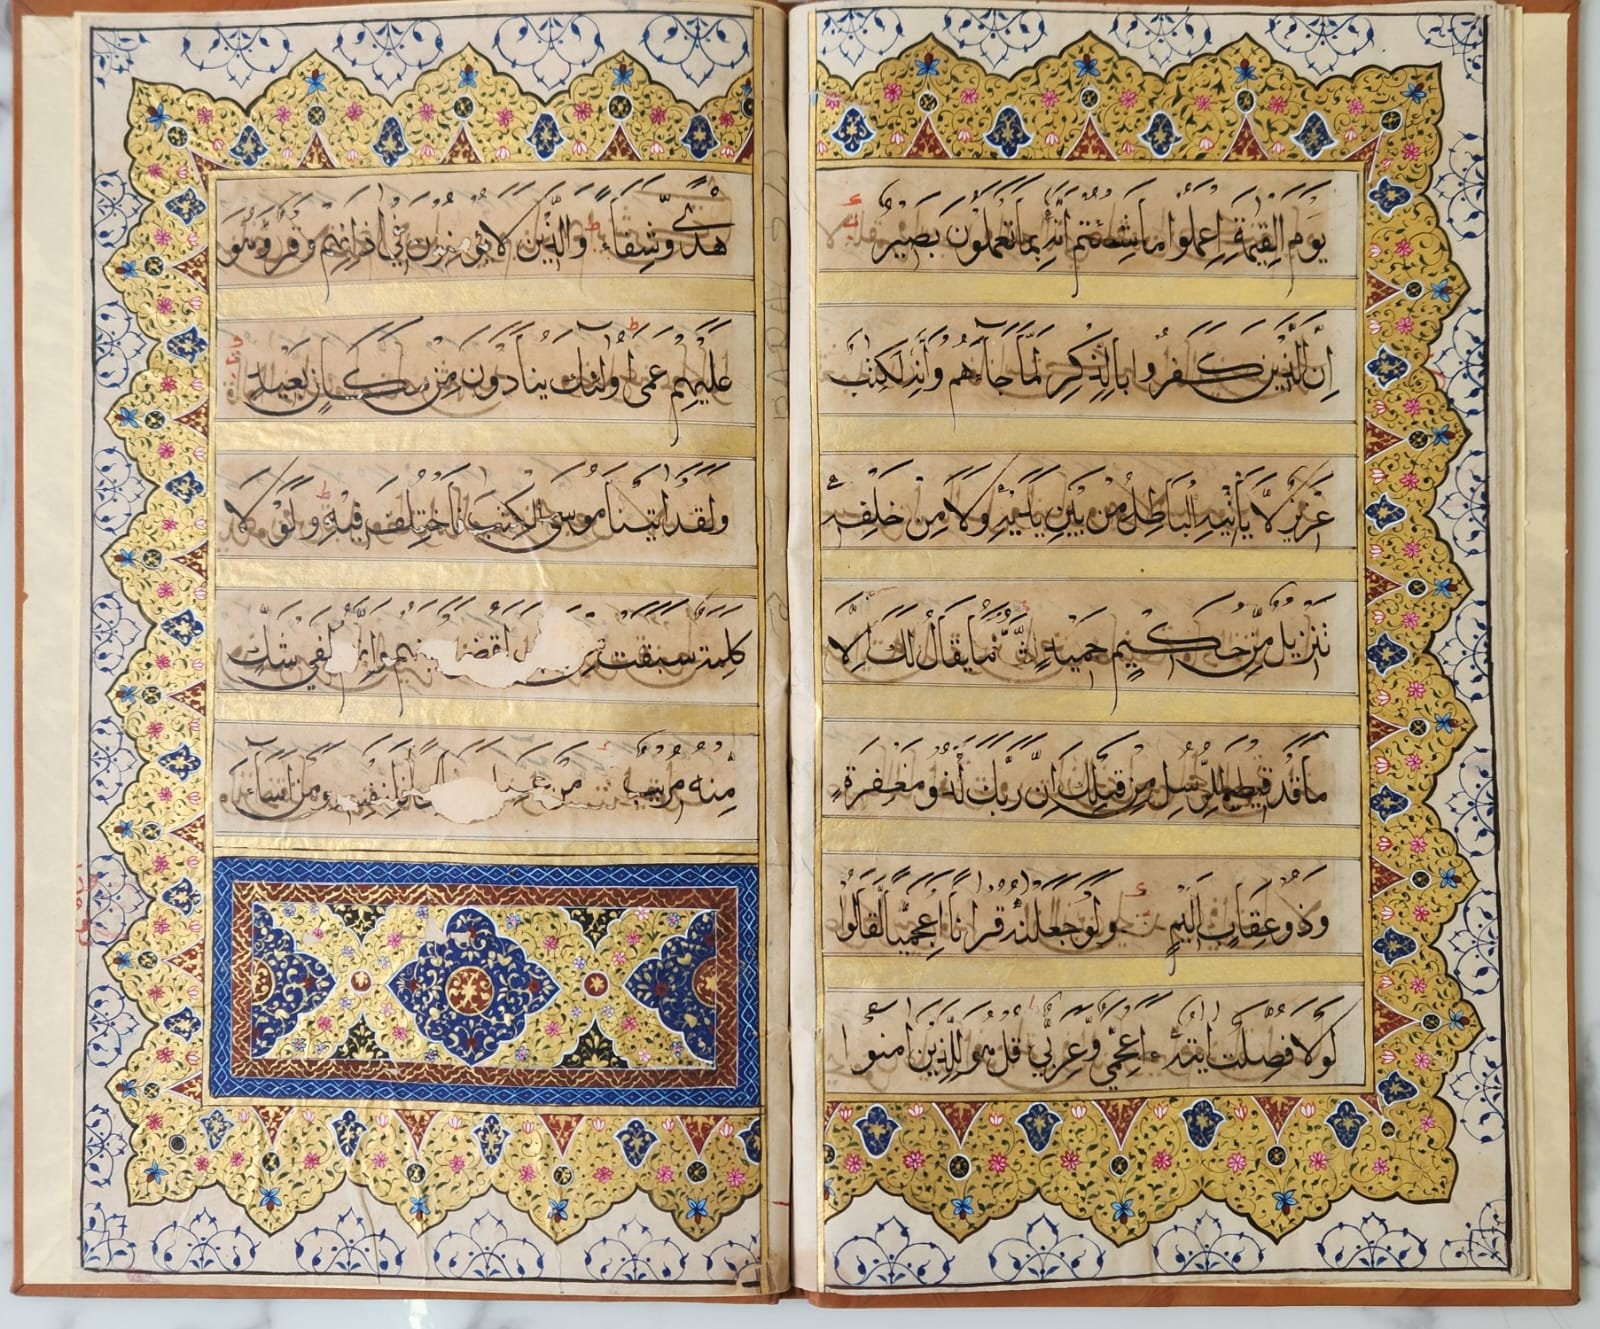 يَوْمَ الْقِيٰمَةِ اِعْمَلُوا مَا شِئْتُمْ اِنَّهُ بِمَا تَعْمَلُونَ بَصِيرٌ
اِنَّ الَّذِينَ كَفَرُوا بِالذِّكْرِ لَمَّا جَآءَهُمْ وَاِنَّهُ لَكِتٰبٌ
عَزِيزٌ لَا يَأْتِيهِ الْبَاطِلُ مِنْ بَيْنِ يَدَيْهِ وَلَا مِنْ خَلْفِهِ
تَنْزِيلٌ مِنْ حَكِيمٍ حَمِيدٍ مَا يُقَالُ لَكَ اِلَّا
مَا قَدْ قِيلَ لِلرُّسُلِ مِنْ قَبْلِكَ اِنَّ رَبَّكَ لَذُو مَغْفِرَةٍ
وَذُو عِقَابٍ اَلِيمٍ وَلَوْ جَعَلْنٰهُ قُرْاٰنًا اَعْجَمِيًّا لَقَالُوا
لَوْلَا فُصِّلَتْ اٰيٰتُهُ ءَاَعْجَمِيٌّ وَعَرَبِيٌّ قُلْ هُوَ لِلَّذِينَ اٰمَنُوا
هُدًى وَشِفَآءٌ وَالَّذِينَ لَا يُؤْمِنُونَ فِي اٰذَانِهِمْ وَقْرٌ وَهُوَ
عَلَيْهِمْ عَمًى اُولٰئِكَ يُنَادَوْنَ مِنْ مَكَانٍ بَعِيدٍ
وَلَقَدْ اٰتَيْنَا مُوسَى الْكِتٰبَ فَاخْتُلِفَ فِيهِ وَلَوْلَا
كَلِمَةٌ سَبَقَتْ لَفِي شَكٍّ
مِنْهُ مُرِيبٍ مَنْ عَمِلَ فَلِنَفْسِهِ وَمَنْ اَسَآءَ